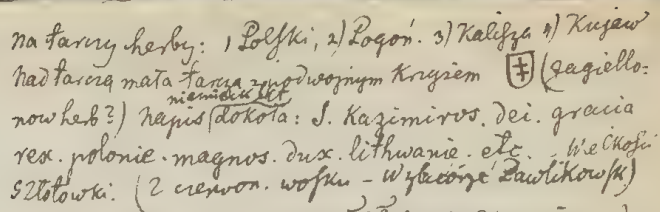 na tarczy herby: 1) Polski, 2) Pogoń. 3) Kalisza 4) Kujaw
nad tarczą mała tarcza z podwojnym Krzyżem (Jagiello-
now herb?) napis dokoła: S. Kazimirvs. dei. gracia
rex. polonie. magnvs. dvx. lithwanie. etc. - Wielkości
sztołowki. (Z czerwon. wosku - W zbiorze Pawlikowsk)